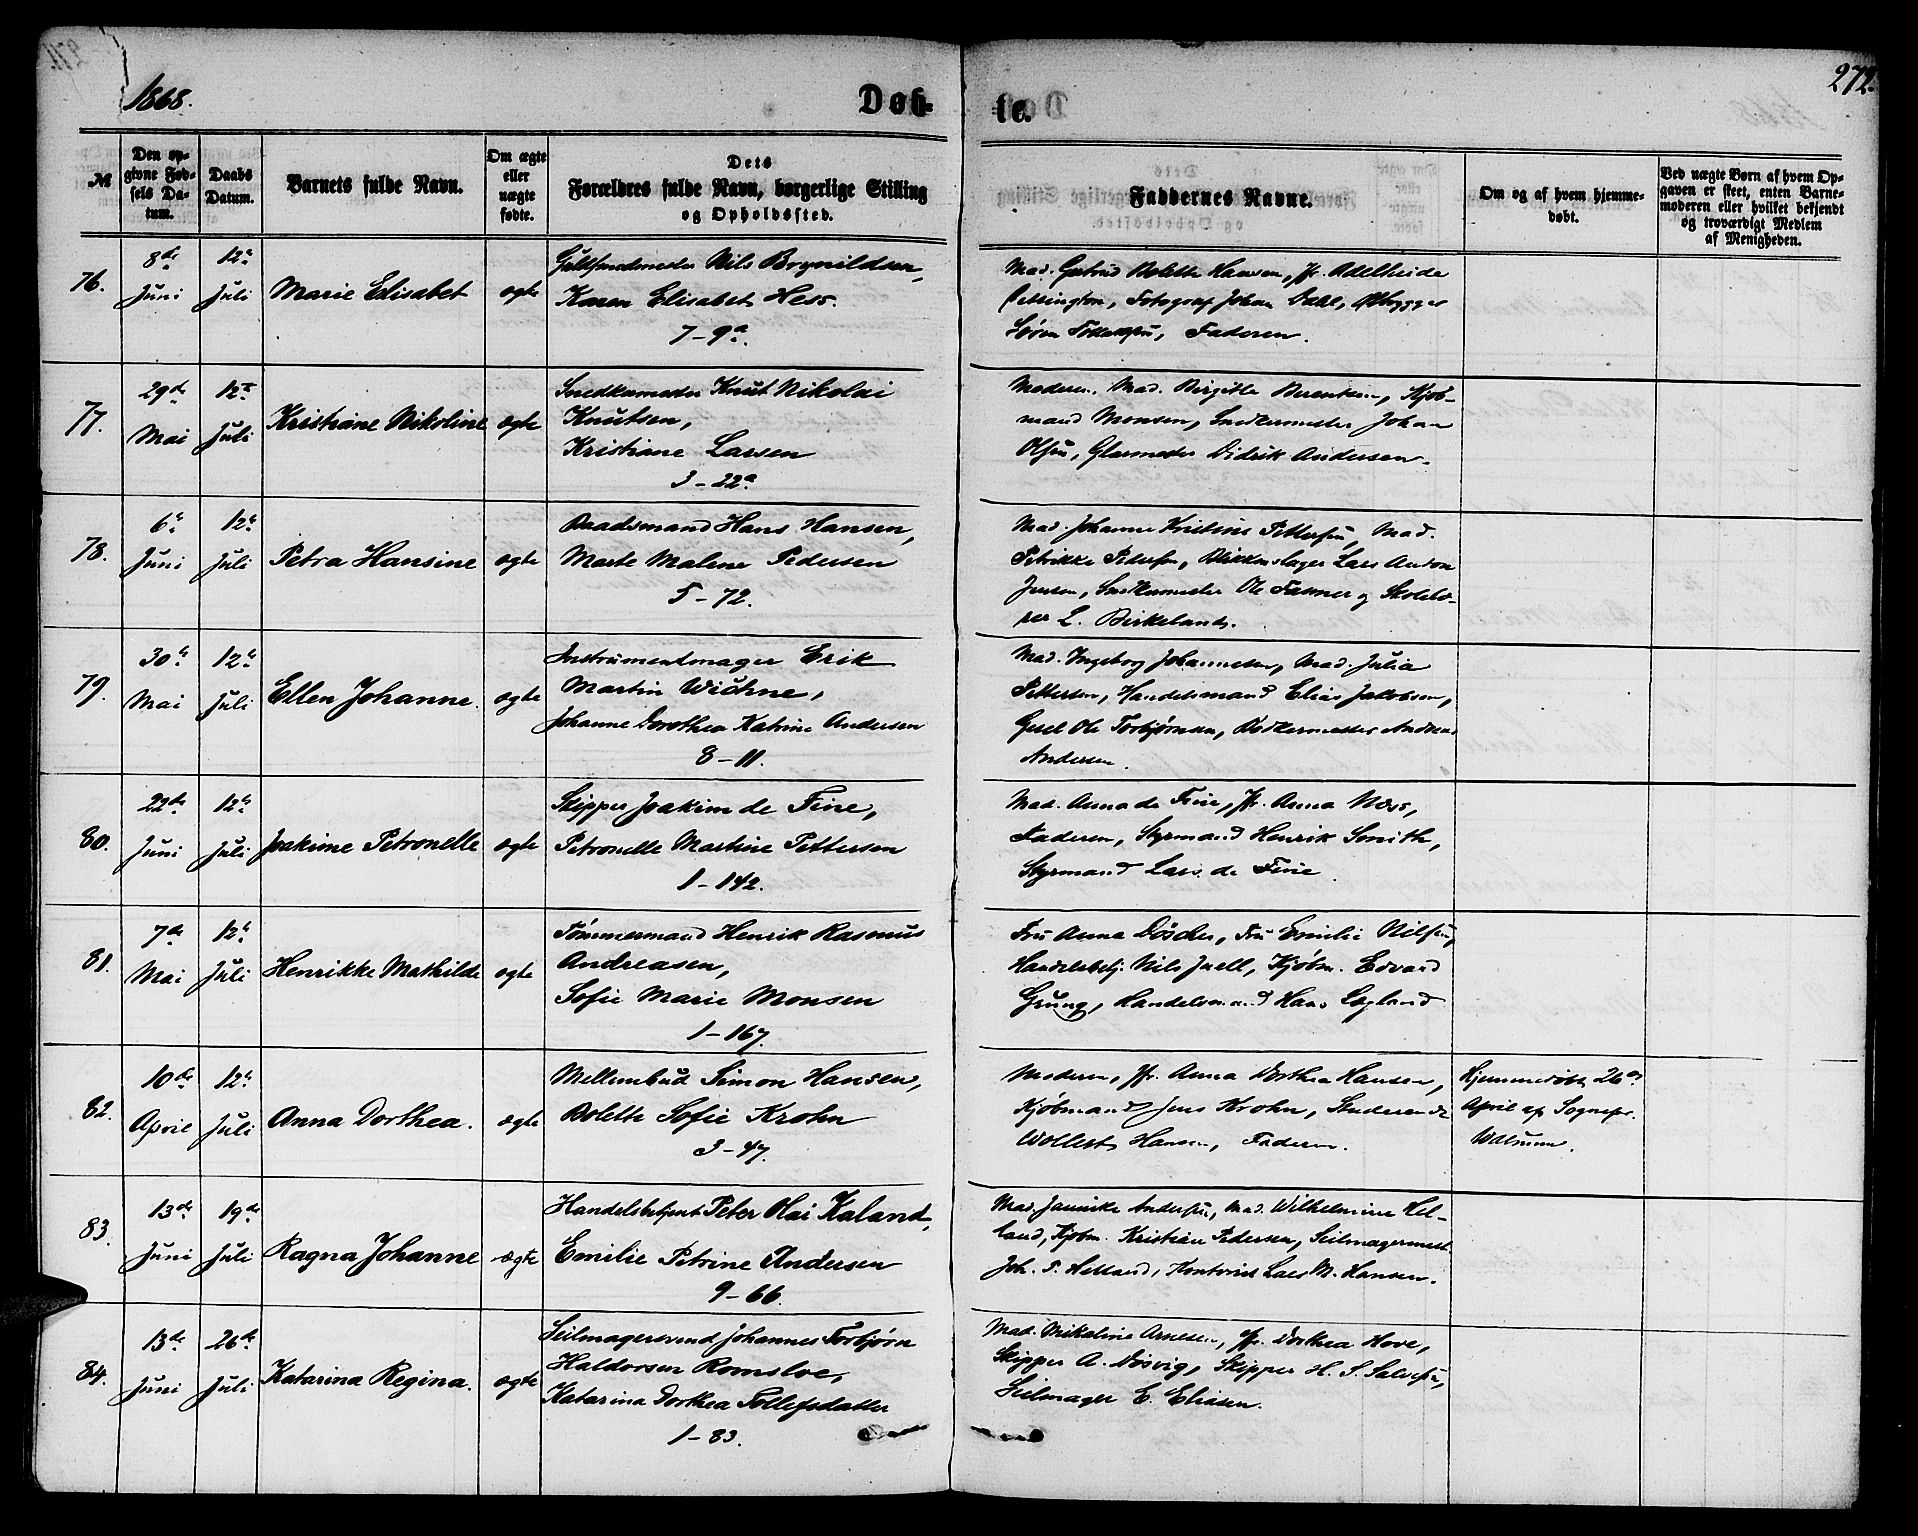 1868.
Døb-
te.
272.
№
Den op-
givne Fød-
sels Da-
tum.
Daabs
Datum.
Barnets fulde Navn.
Om ægte
eller
uægte
fødte.
Dets
Forældres fulde Navn, borgerlige Stilling
og Opholdssted.
Faddernes Navne.
Om og af hvem hjemme-
døbt.
Ved uægte Børn af hvem Op-
gaven er skeet, enten Barne-
moderen eller hvilket bekjendt
og troværdigt Medlem
af Menigheden.
76.
8de
Juni
12te
Juli
Marie Elisabet
ægte
Nils Brynildsen,
Karen Elisabet Hess.
7-9a.
Mad. Gertrud Bolette Hansen, Jfr. Adelheide
Fotograf Johan Dahl,
Søren Faderen.
77.
29de
Mai
12te
Juli
Kristiane Nikoline
ægte
Snedkermester Knut Nikolai
Knutsen,
Kristiane Larsen
3-22a
Moderen, Mad. Birgitte Berentsen, Kjøb-
mand Monsen, Snedkermester Johan
Olsen, Glarmester Didrik Andersen.
78.
6te
Juni
12te
Juli
Petra Hansine
ægte
Baadsmand Hans Hansen,
Marte Malene Pedersen
5-72.
Mad. Johanne Kristine Pettersen, Mad.
Petrikke Pedersen, Blikkenslager Lars Anton
Jensen, Snedkermester Ole Fasmer og Skolelæ-
rer L. Birkeland.
79.
30te
Mai
12te
Juli
Ellen Johanne.
ægte
Instrumentmager Erik
Martin Wichne,
Johanne Dorothea Katrine Andersen
8-11.
Mad. Ingeborg Johannesen, Mad. Julia
Pettersen, Handelsmand Elias Jakobsen,
Ole Torbjørnsen, Andreas
Andersen.
80.
22de
Juni
12te
Juli
Joakime Petronelle
ægte
Skipper Joakim de Fine,
Petronelle Martine Pettersen
1-142.
Mad. Anna de Fine, Jfr. Anna Næss,
Faderen, Styrmand Henrik Smith,
Styrmand Lars de Fine.
81.
7de
Mai
12te
Juli
Henrikke Mathilde
ægte
Tømmermand Henrik Rasmus
Andreasen,
Sofie Marie Monsen
1-167.
Fru Anna Döscher, Fru Emilie Nilsen,
Handelsbetj. Nils Juell, Kjøbm. Edvard
Grung, Handelsmand Hans Lægland
82.
10de
April
12te
Juli
Anna Dorthea.
ægte
Mellembud Simon Hansen,
Bolette Sofie Krohn
3-47.
Moderen, Jfr. Anna Dorthea Hansen,
Kjøbmand Jens Krohn, Studerende
Wollert Hansen, Faderen.
Hjemmedøbt 26de
April af Sognepr.
Walnum.
83.
13de
Juni
19de
Juli
Ragna Johanne
ægte
Handelsbetjent Peter Olai Kaland,
Emilie Petrine Andersen
9-66.
Mad. Jannike Andersen, Mad. Wilhelmine Hel-
land, Kjøbm. Kristian Pedersen, Seilmagermest.
Joh. F. Helland, Kontorist Lars M. Hansen.
84.
13de
Juni
26de
Juli
Katarina Regina.
ægte
Seilmagersvend Johannes Torbjørn
Haldorsen Romsloe,
Katarina Dorthea Tollefsdatter
1-83.
Mad. Nikoline Arnesen, Jfr. Dorthea Hove,
Skipper A. Døsvig, Skipper H. S. Salvesen,
Seilmager E. Eliasen.